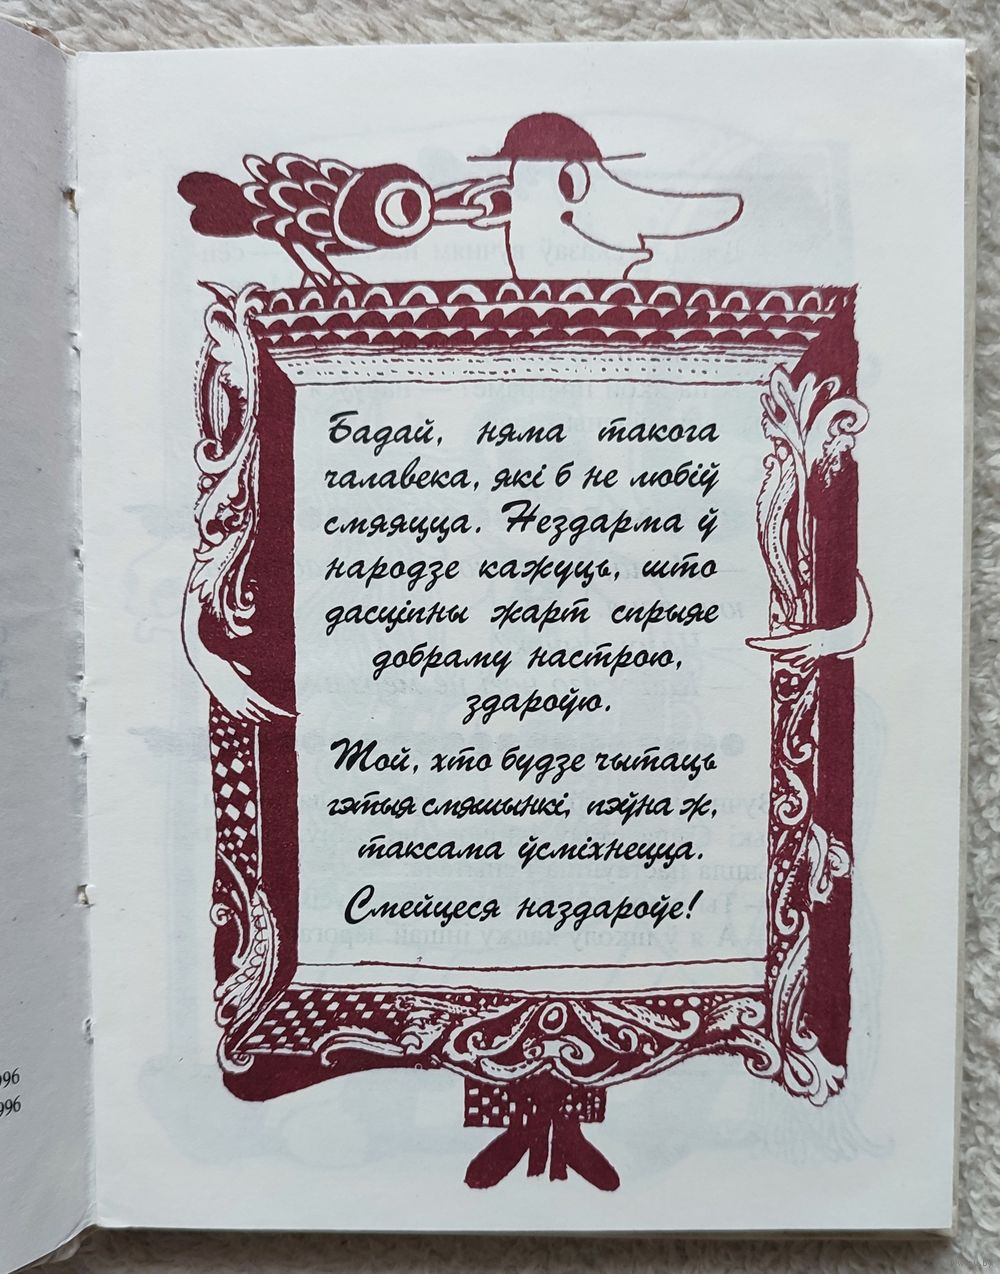 Бадай, няма такога
чалавека, які б не любіў
смяяцца. Нездарма ў
народзе кажуць, што
дасціпны жарт спрыяе
добраму настрою,
здароўю.
Той, хто будзе чытаць
гэтыя смяшынкі, пэўна ж,
таксама ўсміхнецца.
Смейцеся наздароўе!
996
996